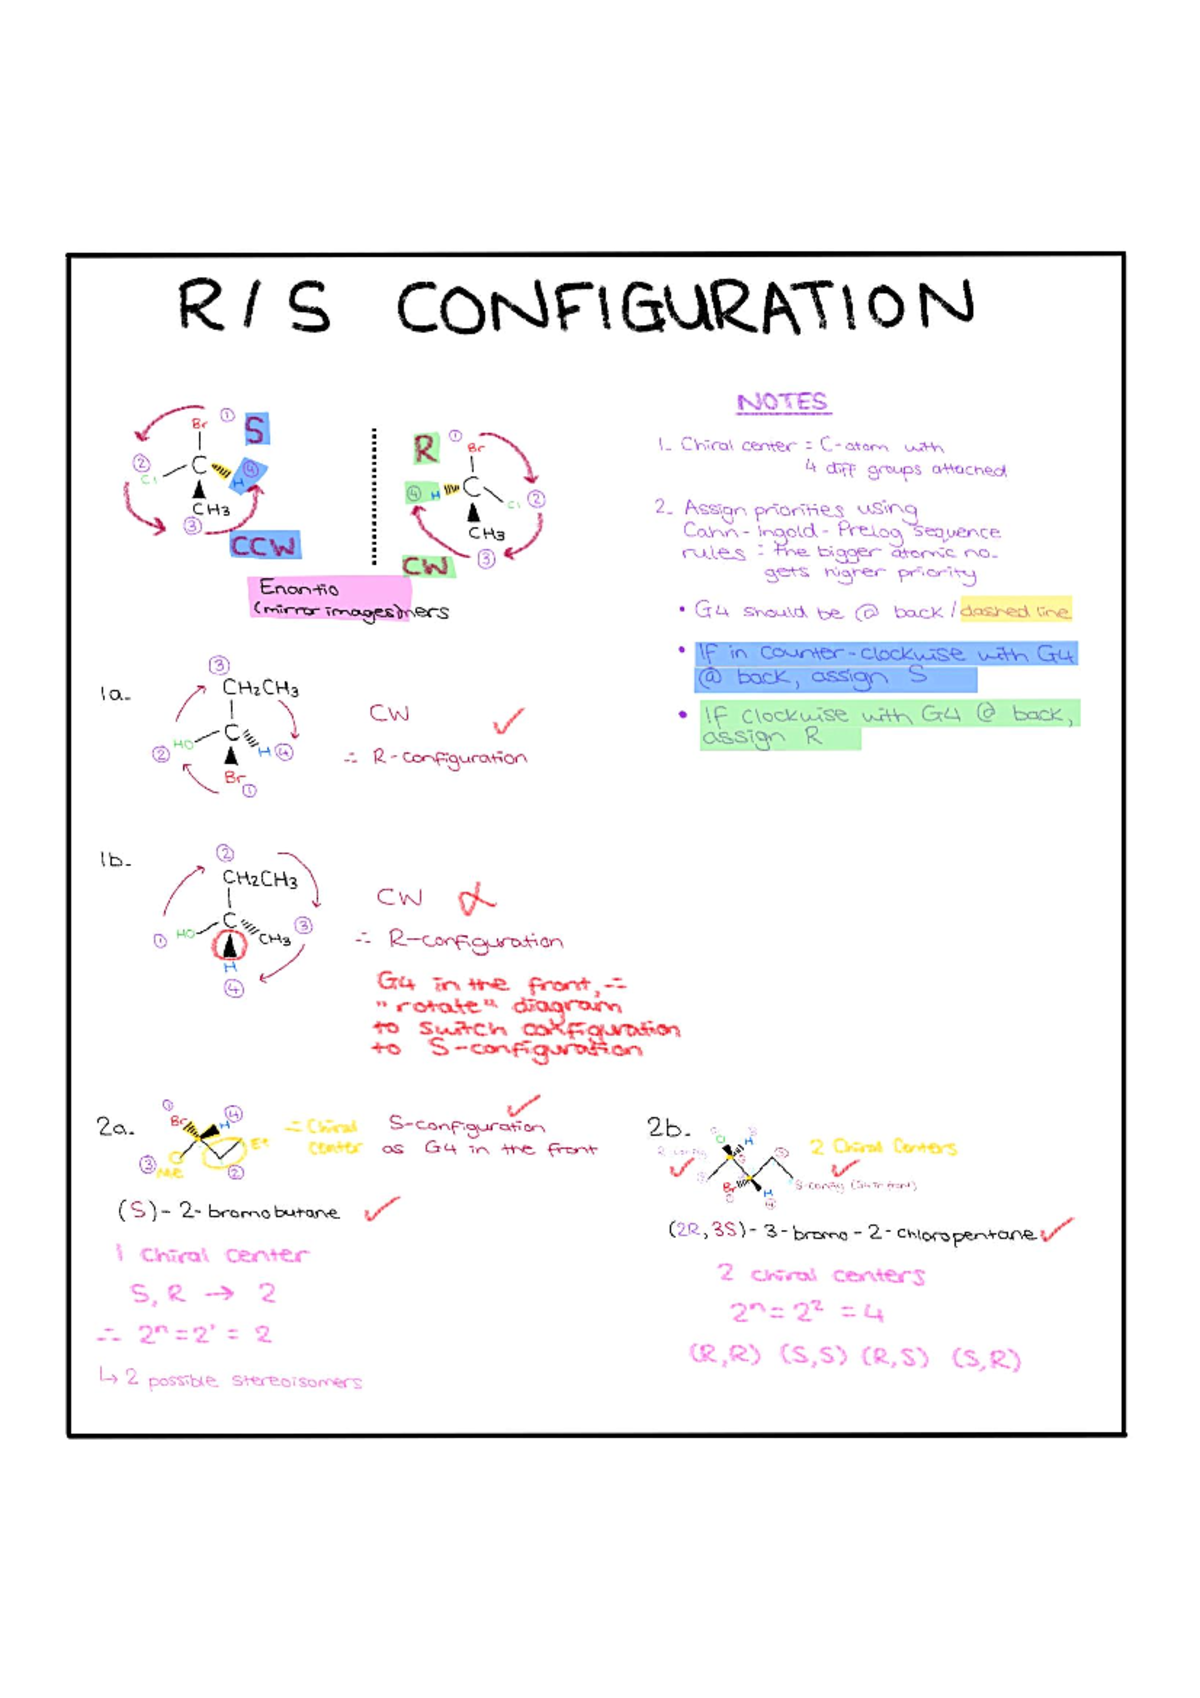 R/S CONFIGURATION
① S
Br
② C ④
Cl H
CH3
③
CCW
R ①
Br
④ H C
Cl ②
CH3
CW ③
Enantio
(mirror images)mers
NOTES
1. Chiral center = C-atom with
4 diff groups attached
2. Assign priorities using
Cahn-Ingold-Prelog sequence
rules : the bigger atomic no.
gets higher priority
• G4 should be @ back / dashed line
• If in counter-clockwise with G4
@ back, assign S
• If clockwise with G4 @ back,
assign R
1a.
③
CH2CH3
C
② HO H ④
Br
①
CW ✓
∴ R-configuration
1b.
②
CH2CH3
C ③
① HO CH3
H
④
CW
∴ R-configuration
G4 in the front, ∴
"rotate" diagram
to switch configuration
to S-configuration
2a.
① ④
Br H
Et
③ Me ②
∴ Chiral
center
S-configuration ✓
as G4 in the front
(S)-2-bromobutane ✓
1 chiral center
S, R → 2
∴ 2ⁿ = 2¹ = 2
↳ 2 possible stereoisomers
2b.
Cl H
Br H
2 Chiral Centers
✓
S-config
(2R,3S)-3-bromo-2-chloropentane ✓
2 chiral centers
2ⁿ = 2² = 4
(R,R) (S,S) (R,S) (S,R)